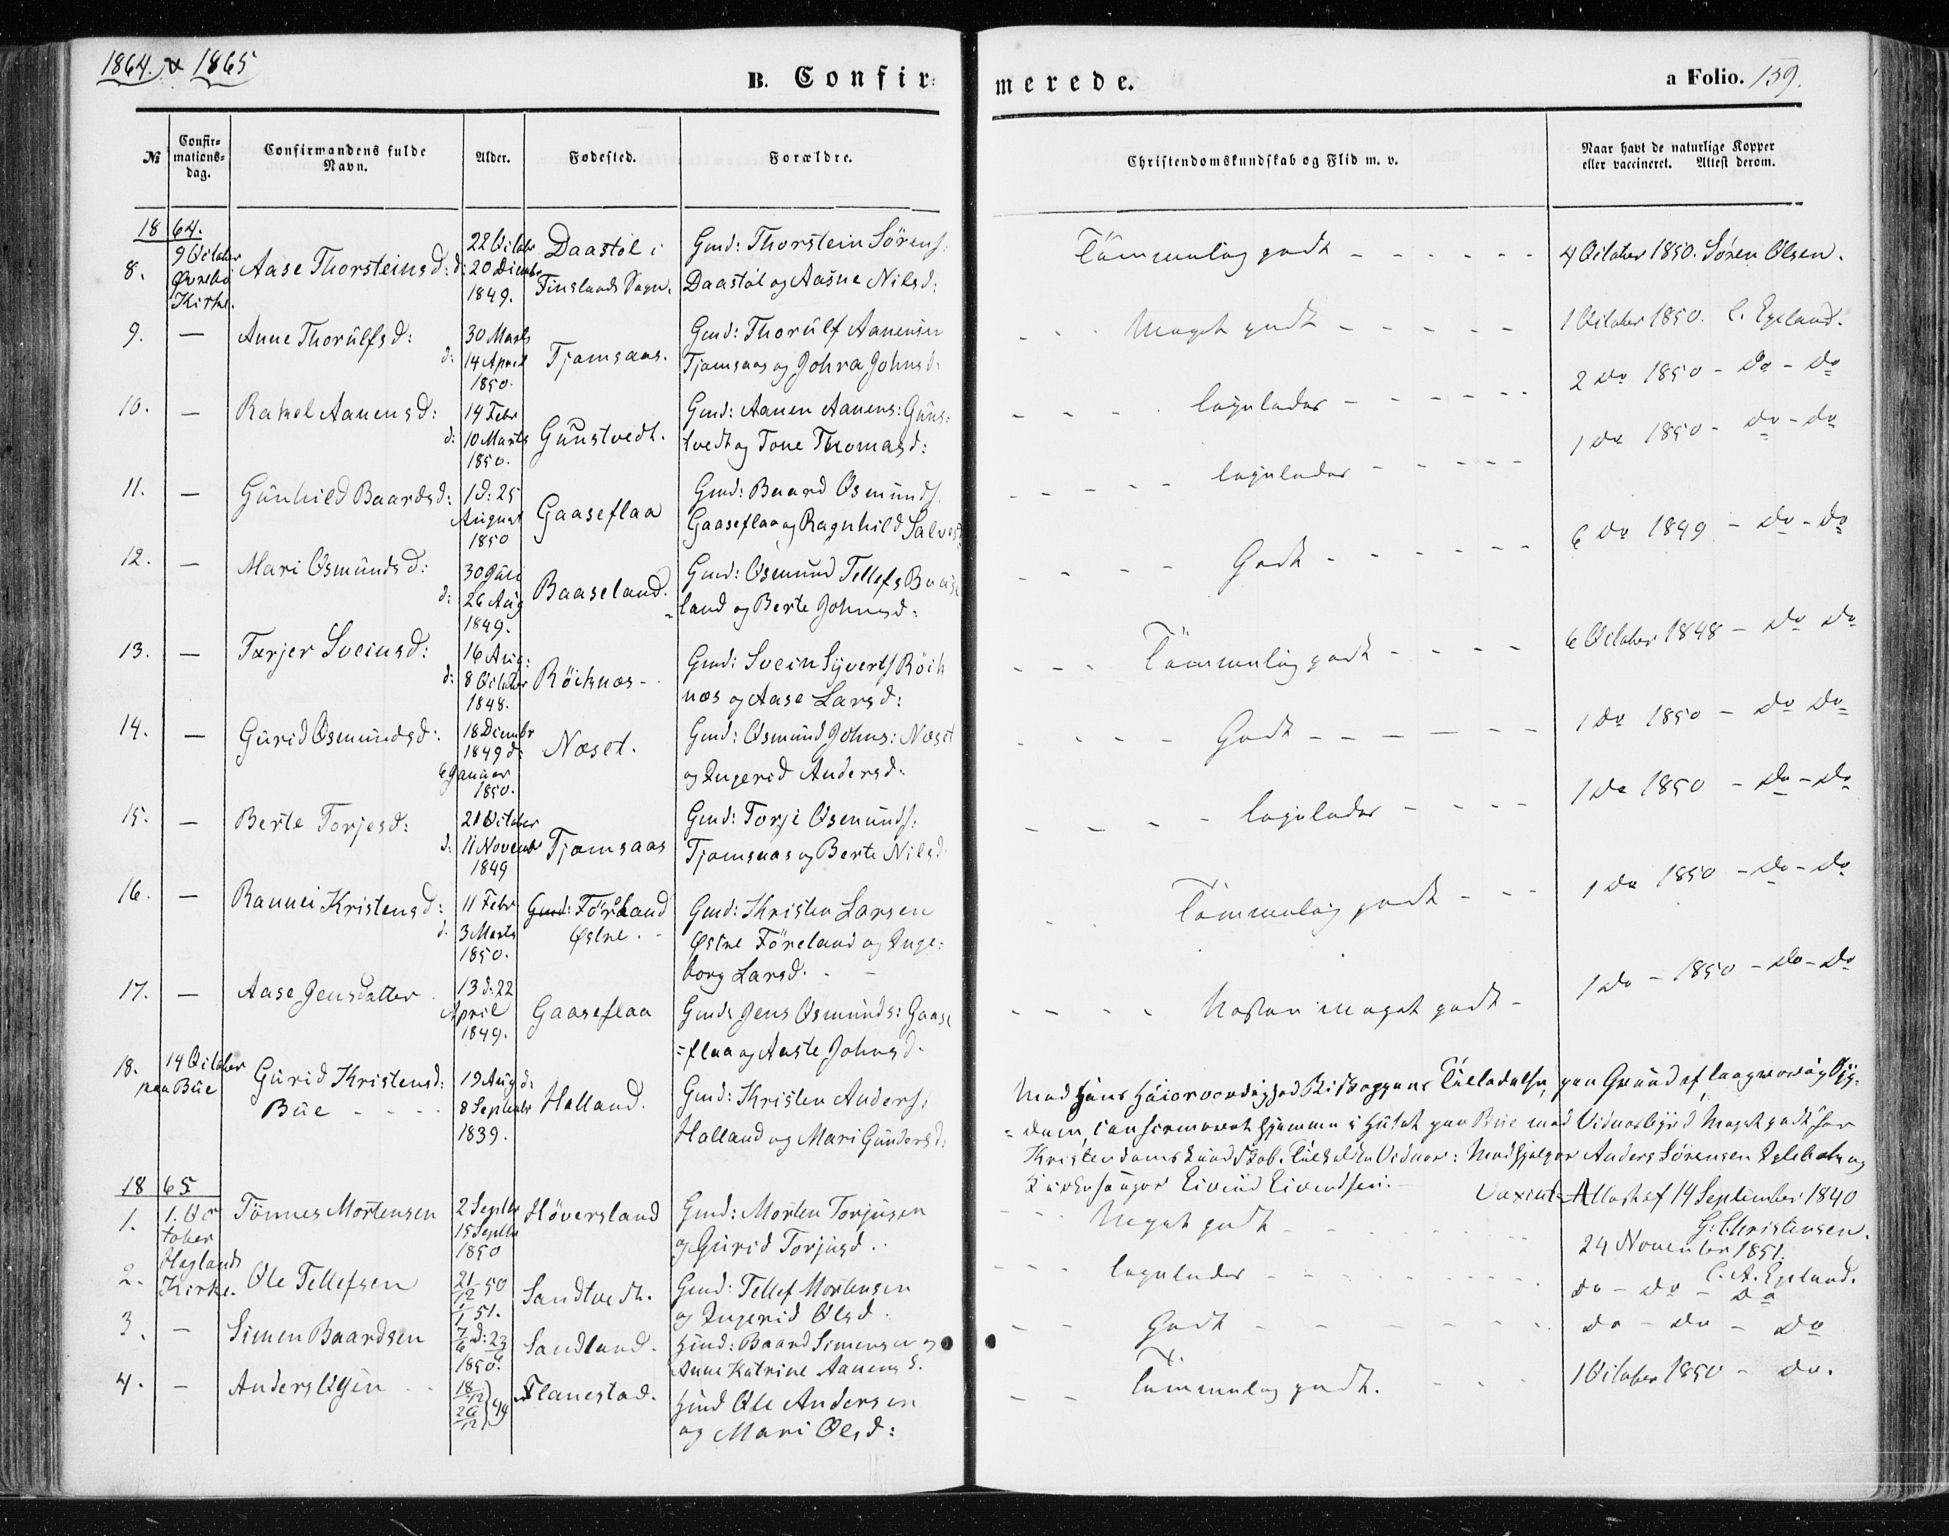 1864. & 1865
B. Confir: merede.
a Folio. 159.
№ Confir=mations=dag. Confirmandens fulde Navn. Alder. Fødested. Forældre. Christendomskundskab og Flid m. v. Naar havt de naturlige Kopper eller vaccineret. Attest derom.
1864.
8. 9 October Øvrebø Kirke. Aase Thorsteinsd: 22 Octobr d: 20 Decembr 1849. Daastöl i Finslands Sogn. Gmd: Thorstein Sörens: Daastöl og Aasne Nilsd: Tömmelig godt - - - - - - 4 October 1850. Sören Olsen.
9. — Anne Thorulfsd: 30 Marts d: 14 April 1850. Tjomsaas. Gmd: Thorulf Aanensen Tjomsaas og Johra Johnsd: - - Meget godt - - - - - 1 October 1850. C. Egeland.
10. — Rakel Aanensd: 14 Febr d: 10 Marts 1850. Gunstvedt. Gmd: Aanen Aanens: Guns: tvedt og Tone Thomasd: - - - - ligeledes - - - - - - 2 do 1850 - do - do
11. — Gunhild Baardsd: 1 d: 25 August 1850 Gaaseflaa Gmd: Baard Osmunds. Gaaseflaa og Ragnhild Salvesd - - - - - ligeledes - - - - - 1 do 1850 - do - do
12. — Mari Osmundsd: 30 Juli d: 26 Aug 1849. Baaseland. Gmd: Osmund Tellefs Baase land og Berte Johnsd: - - - - Godt - - - - - - 6 do 1849 - do - do
13. — Tarjer Sveinsd: 16 Aug: d: 8 October 1848. Röiknæs - Gmd: Svein Syverts Röik næs og Aase Larsd: - - - Tömmelig godt - - - - 6 October 1848 - do do
14. — Gurid Osmundsd: 18 Decmbr 1849 d: 6 Januar 1850. Næset. Gmd: Osmund Johns: Næset og Ingerid Andersd: - - - - Godt - - - - - - 1 do 1850 - do do
15. — Berte Torjesd: 21 October d: 11 Novembr 1849 Tjomsaas Gmd: Torje Osmunds: Tjomsaas og Berte Nilsd - - - - ligeledes - - - - 1 do 1850 - do - do
16. — Rannei Kristensd: 11 Febr d. 3 Marts 1850. Gmd: Föreland Østre. - Gmd: Kristen Larsen Østre Föreland og Inge: borg Larsd. - Tömmelig godt - - - 1 do 1850 - do - do
17. — Aase Jensdatter. 13 d: 22 April 1849. Gaaseflaa Gmd: Jens Osmunds: Gaase =flaa og Aaste Johnsd. - - - - Næsten meget godt - 1 do - 1850 - do - do
18. 14 October paa Bue Gurid Kristensd: Bue - - - - 19 Aug d: 8 Septembr 1839. Holland. Gmd: Kristen Anders: Holland og Mari Gundersd:
Med Hans Höiærværdighed Biskoppens Tilladelse, paa Grund af langvarig Syg:
=dom, confirmeret hjemme i Huset paa Bue med Vidnesbyrd Meget godt for
Kristendomskundskab. Tilkaldte Vidner: Medhjelper Anders Sörensen og
Kirkesanger Eivind Eivindsen. Vaxine Attest af 14 September 1840
G: Christensen.
1865
1. 1. October Heglands Kirke. Tönnes Mortensen 2 Septbr 15 Septbr 1850 Höversland Gmd: Morten Torjusen og Gurid Torjusd. - - - Meget godt - - - - - 24 November 1851. C. A. Egeland.
2. Ole Tellefsen 21/12 50 1/1 51. Sandtvedt. Gmd: Tellef Mortensen og Ingerid Olsd. - - - ligeledes - - - - - do - do - do
3. — Simen Baardsen 7/6 d: 23/6 1850. Sandland. Hmd: Baard Simensen og Anne Katrine Aanensd. - - Godt - - - - - do - do - do
4. — Anders Olsen - - 18/12 26/12 } 49 Flanestad. Hmd Ole Andersen og Mari Olsd: - - Tömmelig godt. - - - 1 October 1850 - do.